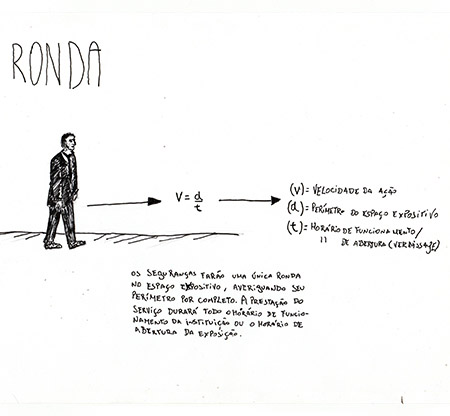 RONDA
V = d/t
(V) = VELOCIDADE DA AÇÃO
(d) = PERÍMETRO DO ESPAÇO EXPOSITIVO
(t) = HORÁRIO DE FUNCIONAMENTO/
" DE ABERTURA (VERNISSAGE)
OS SEGURANÇAS FARÃO UMA ÚNICA RONDA
NO ESPAÇO EXPOSITIVO, AVERIGUANDO SEU
PERÍMETRO POR COMPLETO. A PRESTAÇÃO DO
SERVIÇO DURARÁ TODO O HORÁRIO DE FUNCIO-
NAMENTO DA INSTITUIÇÃO OU O HORÁRIO DE
ABERTURA DA EXPOSIÇÃO.